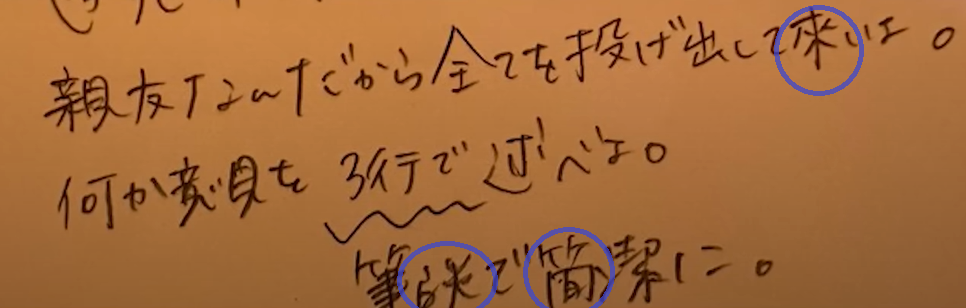 親友なんだから全てを投げ出して來いよ。
何か意見を3行で述べよ。
筆談で簡潔に。